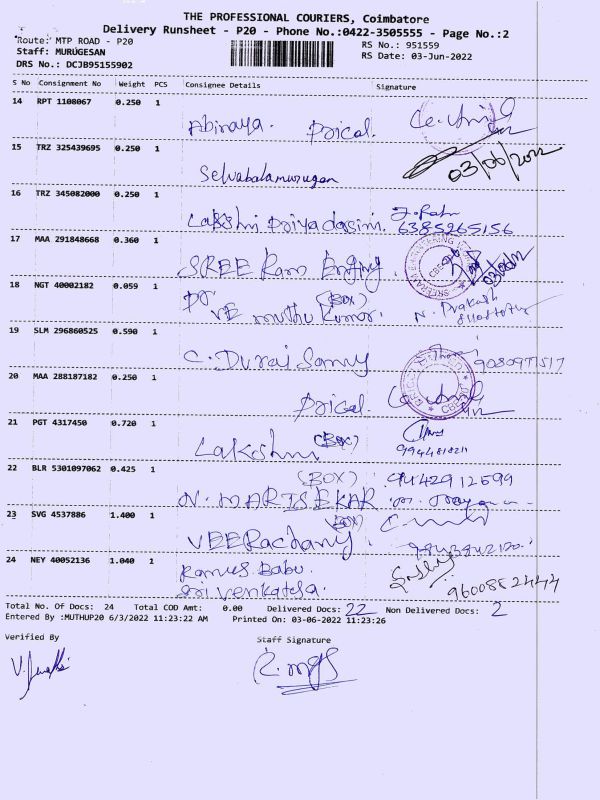 THE PROFESSIONAL COURIERS, Coimbatore
Delivery Runsheet - P20 - Phone No.:0422-3505555 - Page No.:2
Route: MTP ROAD - P20
RS No.: 951559
Staff: MURUGESAN
RS Date: 03-Jun-2022
DRS No.: DCJB95155902
S No Consignment No Weight PCS Consignee Details Signature
14 RPT 1108067 0.250 1
Abiraya. Pricol.
15 TRZ 325439695 0.250 1
Selvabalamurugan 03/06/2022
16 TRZ 345082000 0.250 1
Lakshmi Priyadasini 6385265156
17 MAA 291848668 0.360 1
SREE Ram Enging.
18 NGT 40002182 0.059 1
(BOX)
VE muthu Kumar. N. Prakash
19 SLM 296860525 0.590 1
C. Durai Samy
20 MAA 288187182 0.250 1
Pricol.
21 PGT 4317450 0.720 1
Lakshmi (BOX)
22 BLR 5301097062 0.425 1
(BOX) 9442912699
N. MARISEKAR
23 SVG 4537886 1.400 1
(BOX)
24 NEY 40052136 1.040 1
Ramesh Babu.
Sri Venkatesa. 9600852444
Total No. Of Docs: 24 Total COD Amt: 0.00 Delivered Docs: 22 Non Delivered Docs: 2
Entered By :MUTHUP20 6/3/2022 11:23:22 AM Printed On: 03-06-2022 11:23:26
Verified By Staff Signature